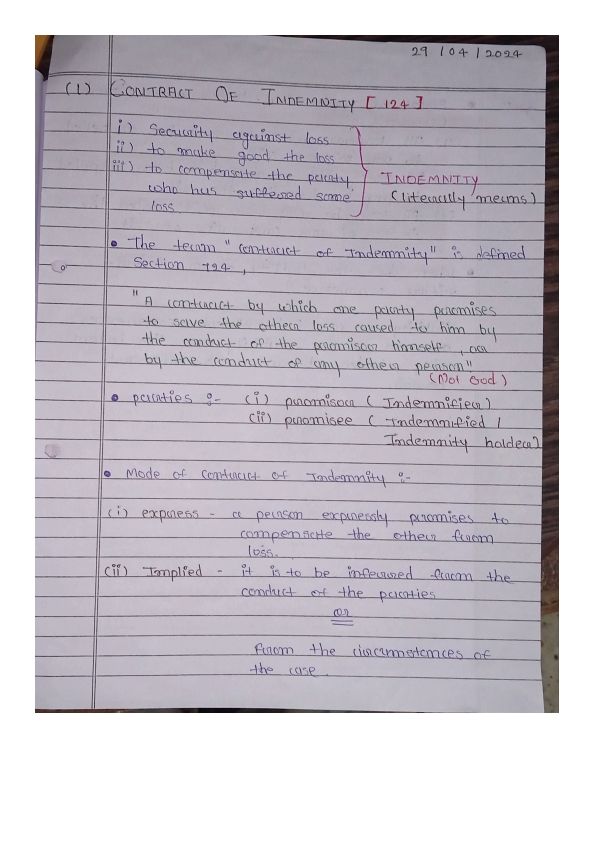 29 / 04 / 2024
(1) CONTRACT OF INDEMNITY [ 124 ]
i) Security against loss
ii) to make good the loss
iii) to compensate the party
who has suffered some
loss.
INDEMNITY
(literally means)
• The term "contract of Indemnity" is defined
Section 124,
"A contract by which one party promises
to save the other loss caused to him by
the conduct of the promisor himself, or
by the conduct of any other person"
(Not God)
• parties :- (i) promisor ( Indemnifier)
(ii) promisee ( Indemnified /
Indemnity holder)
• Mode of contract of Indemnity :-
(i) express - a person expressly promises to
compensate the other from
loss.
(ii) Implied - it is to be inferred from the
conduct of the parties
or
from the circumstances of
the case.